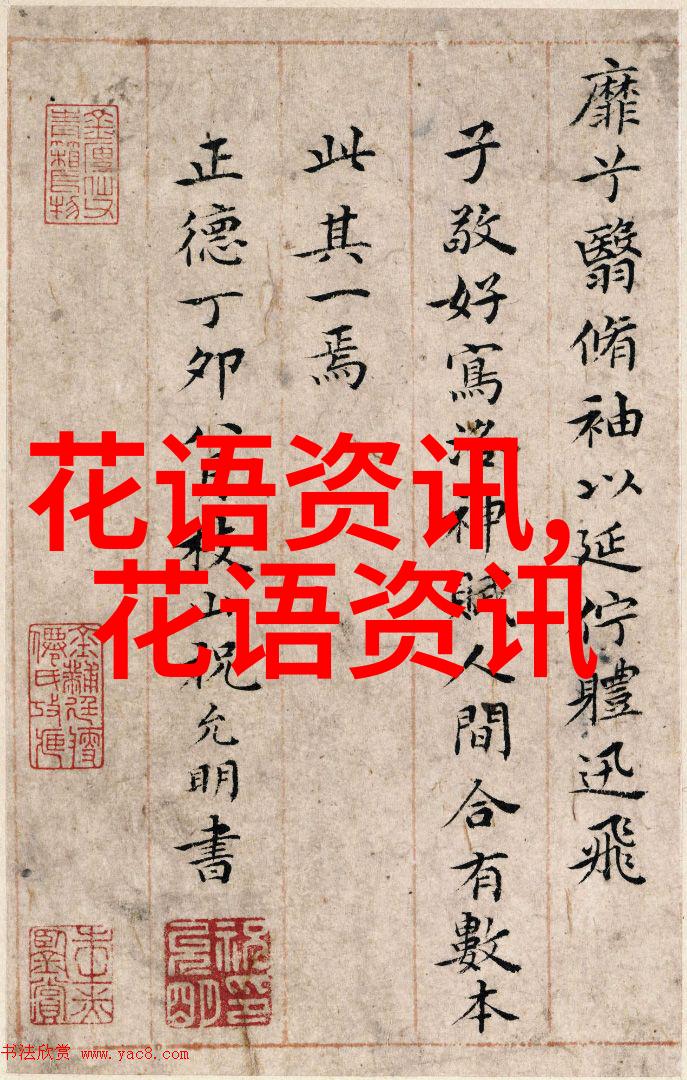 靡兮翳脩袖以延佇體迅飛
子敬好寫洛神賦人間合有數本
此其一焉
正德丁卯八月枝山祝允明書
花语资讯,
花语资讯
书法欣赏 www.yac8.com